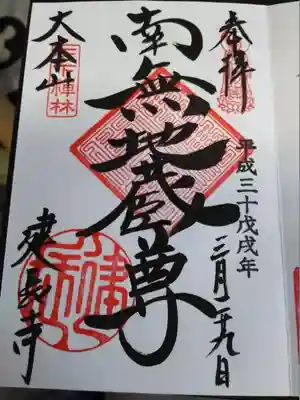 奉拝
平成三十戊戌年
三月二十九日
南無地蔵尊
大本山
天下禅林
建長寺